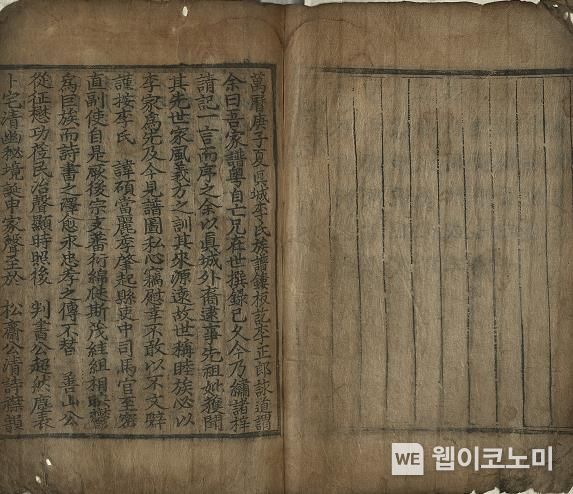 萬曆庚子夏眞城李氏族譜鏤板訖李正郎詠道謂
余曰吾家譜粤自亡兄在世撰錄已久今乃繡諸梓
請記一言而序之余以眞城外裔逮事先祖妣獲聞
其先世家風義方之訓其來源遠故世稱睦族必以
李家爲先及今見譜圖私心竊慰幸不敢以不文辭
謹按李氏 諱碩當麗季肇起縣吏中司馬官至密
直副使自是厥後宗支蕃衍綿綿斯茂組相
爲巨族而詩書之澤愈永忠孝之傳不替 善山公
從征懋功莅民治聲顯時照後 判書公超然塵表
卜宅淸幽秘境誕申家聲至於 松齋公淸詩襟韻
WE 웹이코노미